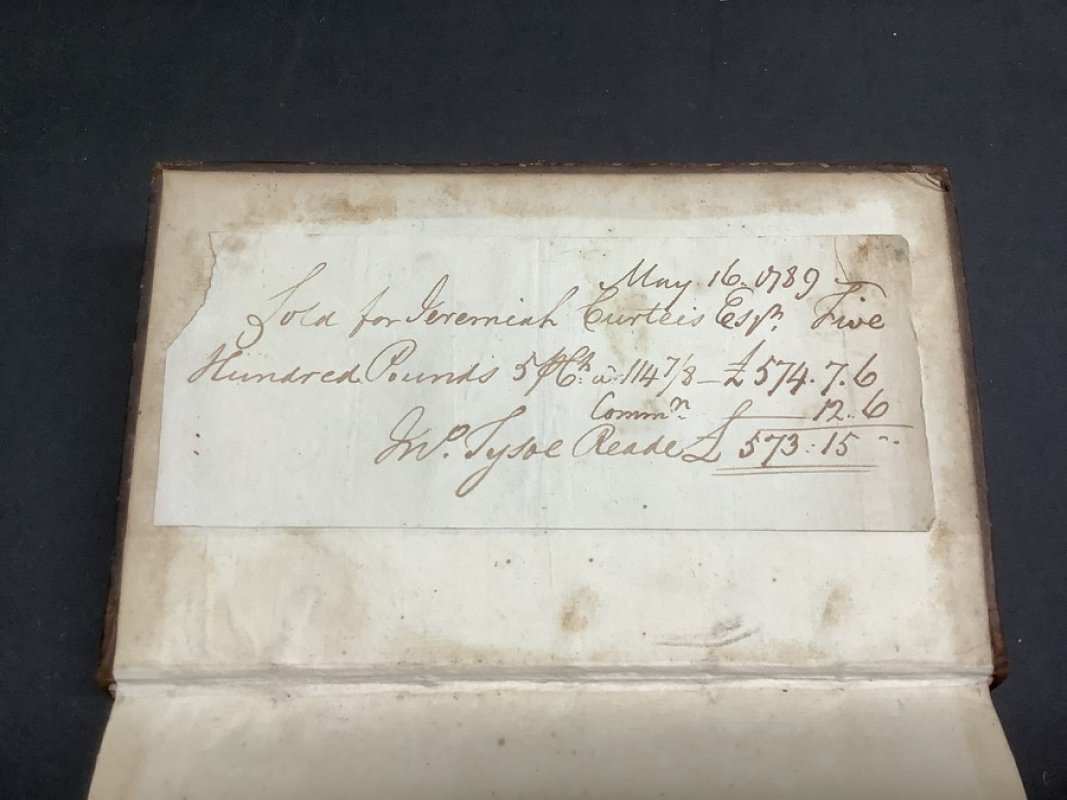 May 16. 1789
Sold for Jeremiah Curteis Esqr. Five
Hundred Pounds 5 pCt. a 114 7/8 — £574.7.6
Commn. 12.6
Tysoe Reade £ 573.15 --